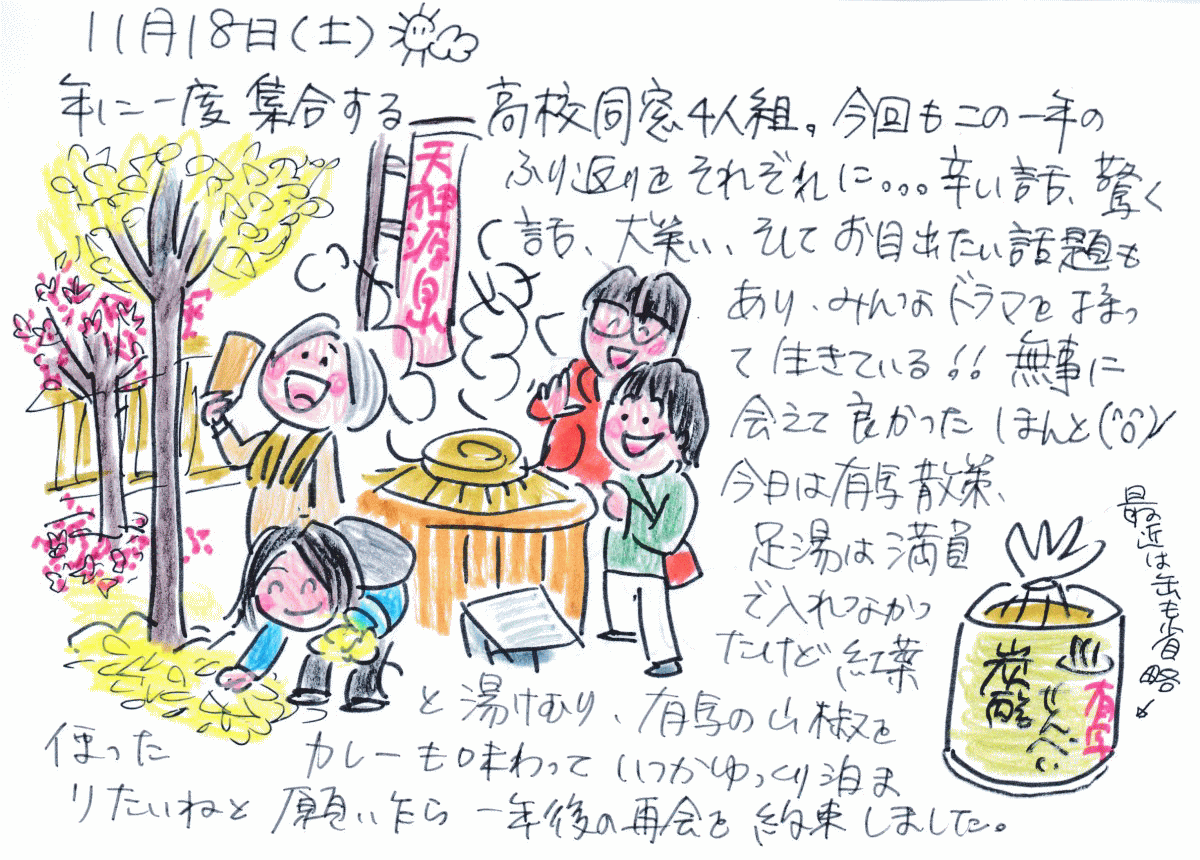 11月18日(土)
年に一度集合する 高校同窓4人組。今回もこの一年の
ふり返りをそれぞれに。。。辛い話、驚く
話、大笑い、そしてお目出たい話題も
あり、みんなドラマを持っ
て生きている!!無事に
会えて良かったほんと(^o^)/
今日は有馬散策、
足湯は満員
で入れなかっ
たけど紅葉
と湯けむり、有馬の山椒を
使った カレーも味わっていつかゆっくり泊ま
りたいねと願いながら一年後の再会を約束しました。
天神源泉
最近は缶も省略
有馬
炭酸
せんべい